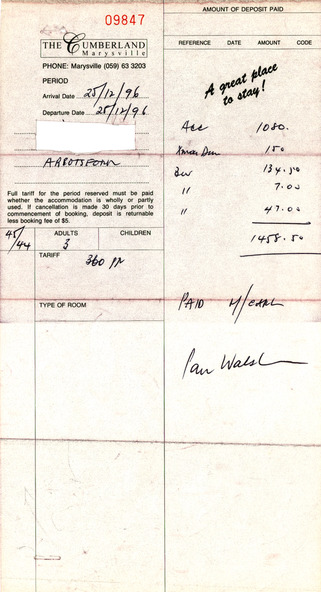 09847
THE CUMBERLAND
Marysville
PHONE: Marysville (059) 63 3203
PERIOD
Arrival Date 25/12/96
Departure Date 25/12/96
ABBOTSFORD
Full tariff for the period reserved must be paid
whether the accommodation is wholly or partly
used. If cancellation is made 30 days prior to
commencement of booking, deposit is returnable
less booking fee of $5.
45/44
ADULTS CHILDREN
3
TARIFF
360 PN
TYPE OF ROOM
AMOUNT OF DEPOSIT PAID
REFERENCE DATE AMOUNT CODE
A great place
to stay!
Acc 1080.
Xmas Din 150
134.50
" 7.00
" 47.00
1458.50
PAID M/CARD
Walsh